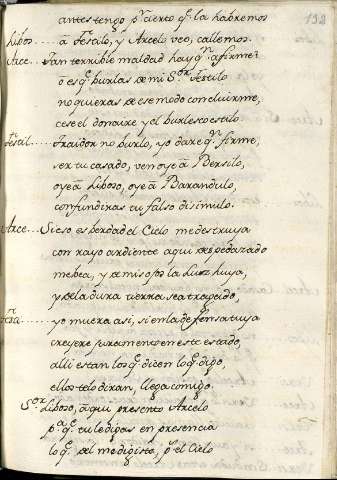 132
antes tengo pr cierto q̃ la habremos
Liboso.... â Testilo, y Arcelo veo, callemos.
Arce... Tan terrible maldad hay qn afirme?
ô es q̃ burlas de mi Sor Testilo
no quieras de ese modo concluirme,
cese el donaire y el burlesco estilo.
Testil.... Traidor no burlo, yo dare qn firme,
ser tu casado, ven oye â Bersilo,
oye â Liboso, oye â Barandulo,
confundiras tu falso disimulo.
Arce... Si eso es berdad el Cielo me destruya
con rayo ardiente aqui despedazado
me vea, y de mis ojos la Luz huya,
y de la dura tierra sea tragado,
Testi..... yo muera asi, si en la defensa tuya
creyere juramento en este estado,
alli estan los q̃ dicen lo q̃ digo,
ellos te lo diran, llega comigo.
Sor Liboso, aqui presento Arcelo
pa q̃ tu le digas en presencia
lo q̃ del me digiste, pr el Cielo